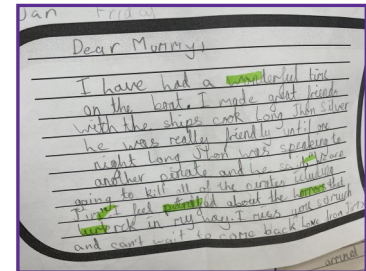 Jan Friday
Dear Mummy,
I have had a wonderful time
on the boat. I made great friends
with the ships cook Long Jhon Silver
he was really friendly until one
night Long Jhon was speaking to
another pirate and he said
going to kill all of the
I feel about the that
in my way. I miss you so much
and can't wait to come back Love from